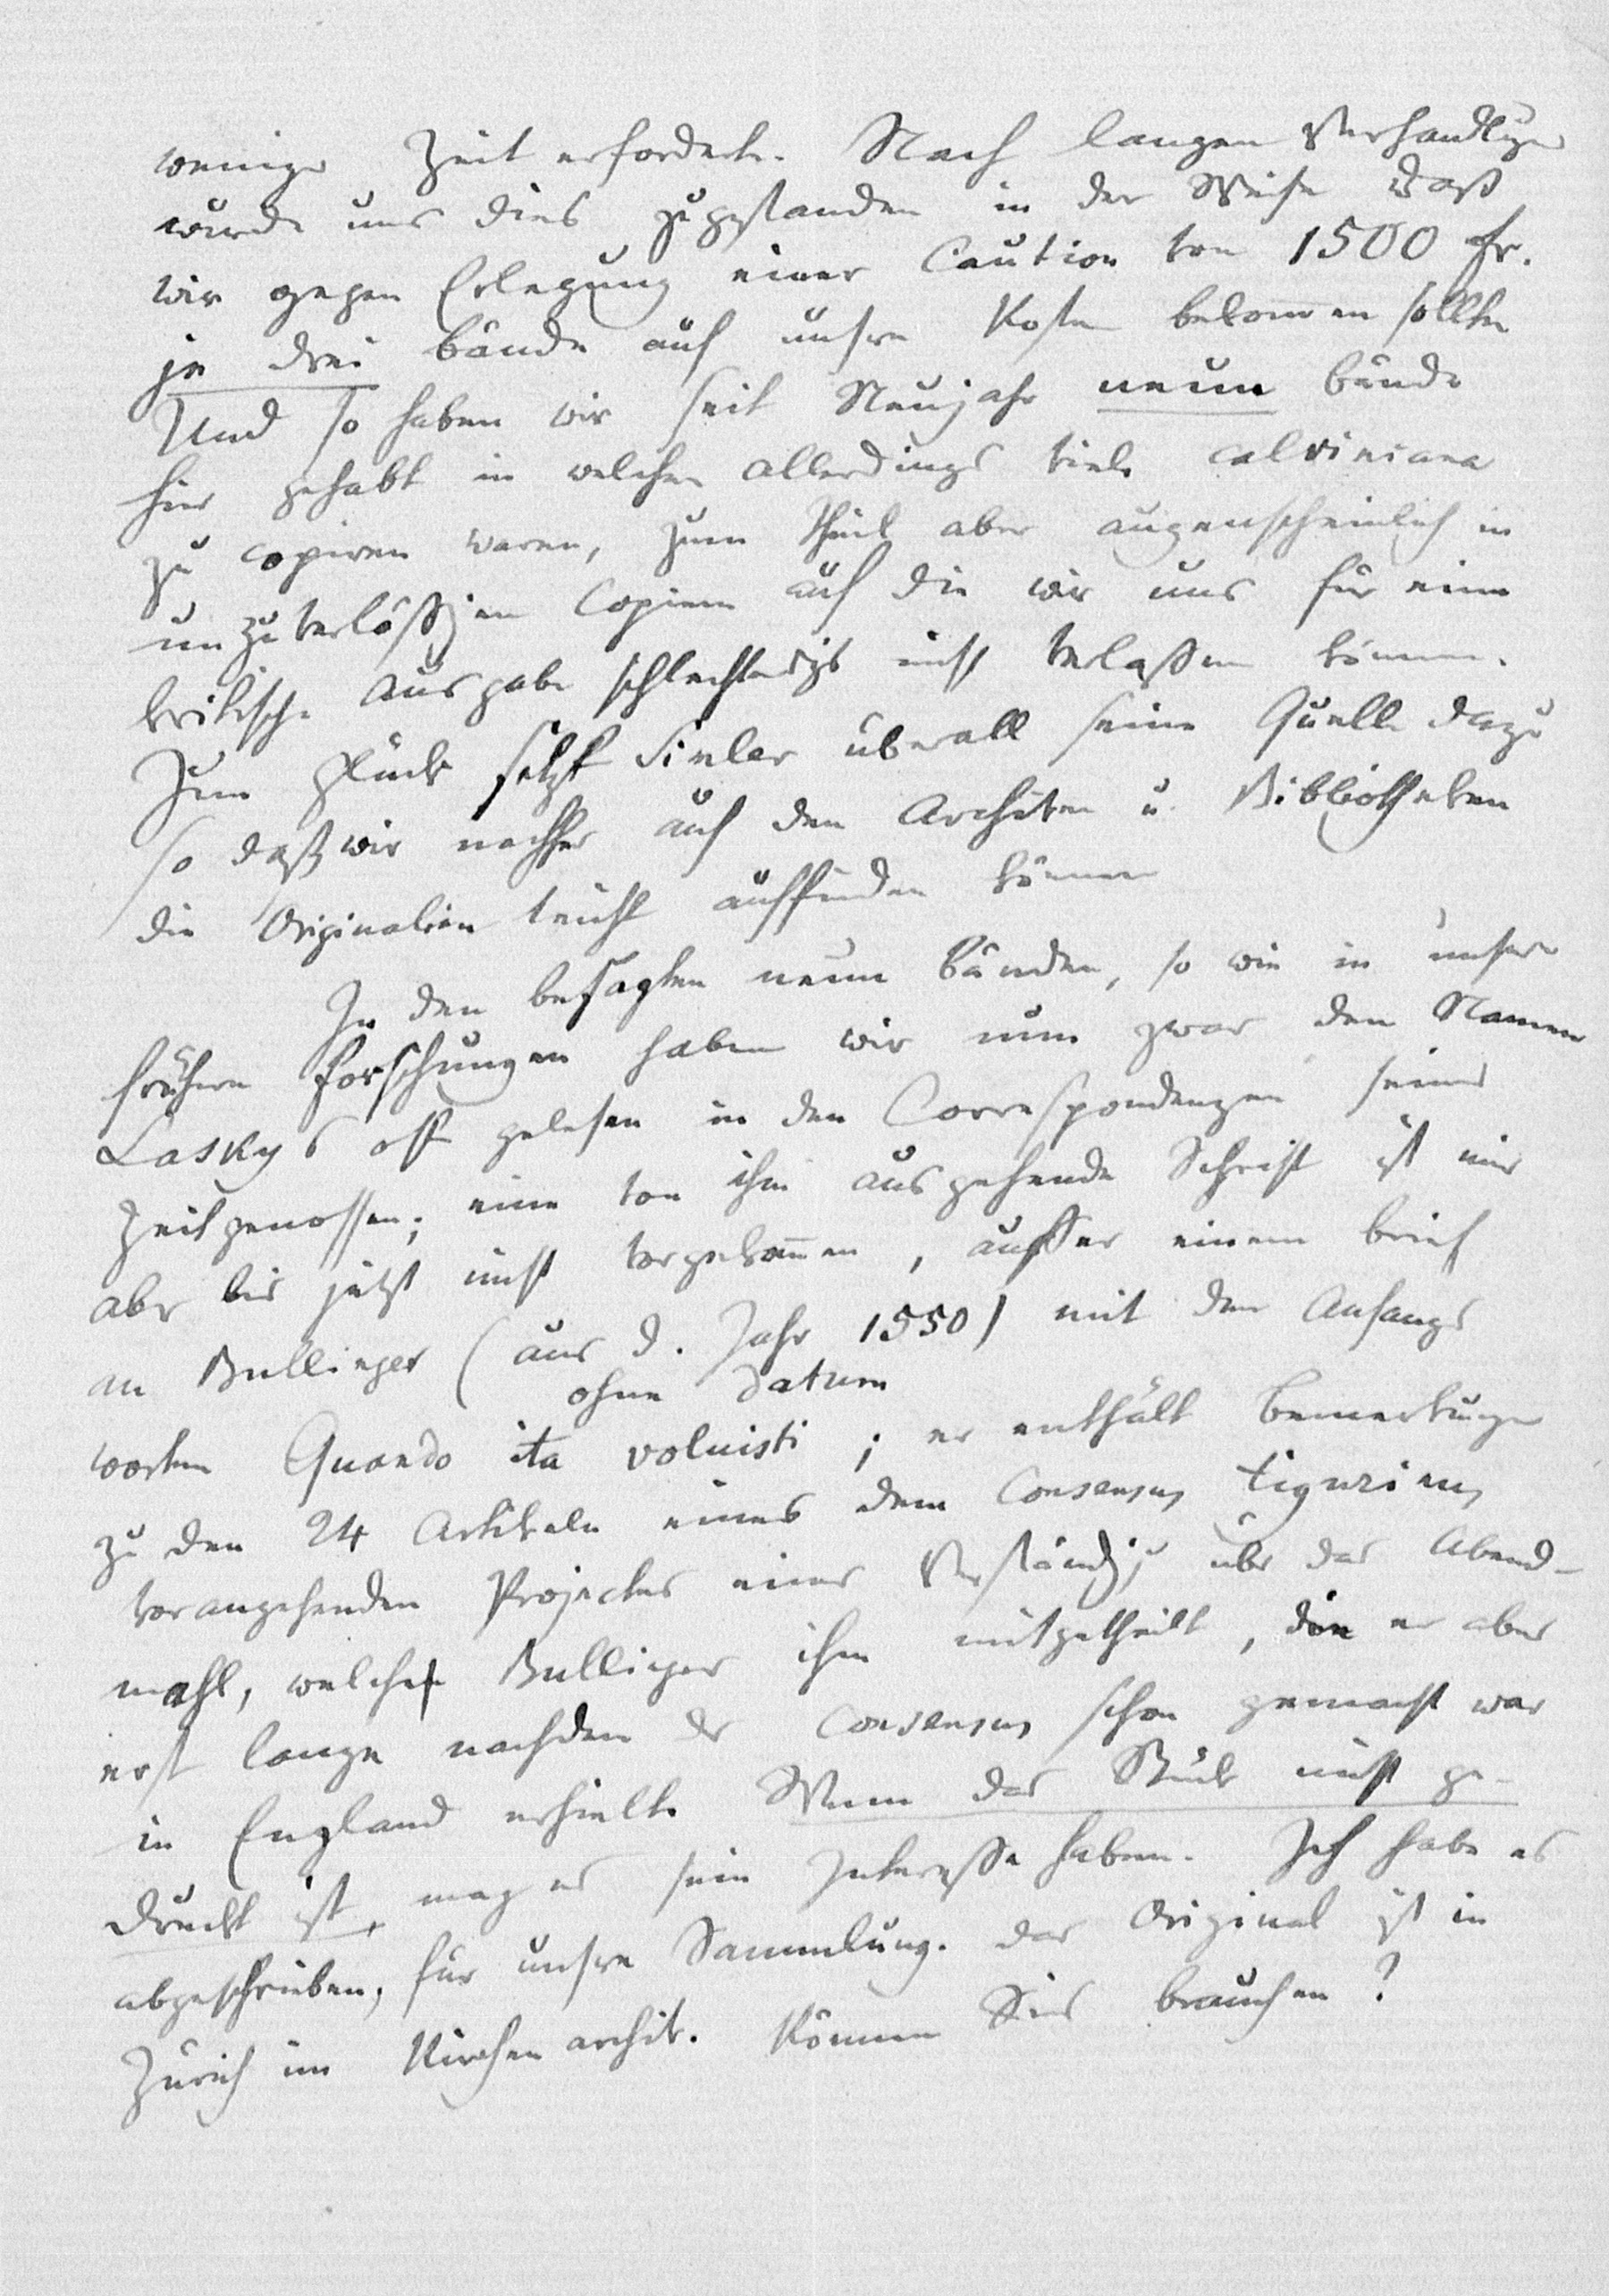 wenige Zeit erforderte. Nach langen Verhandlgen
wurde uns dies zugestanden in der Weise daß
wir gegen Erlegung einer Caution von 1500 fr.
je drei Bände auf unsre Kosten bekommen sollten
Und so haben wir seit Neujahr neun Bände
hier gehabt in welchen allerdings viele calviniana
zu copiren waren, zum Theil aber augenscheinlich in
unzuverläßigen Copien auf die wir uns für eine
kritische Ausgabe schlechterdgs nicht verlaßen können.
Zum Glück setzt Simler überall seine Quelle dazu
so daß wir nachher auf den Archiven u. Bibliotheken
die Originalien leicht auffinden können
In den besagten neun Bänden, so wie in unsern
frühern Forschungen haben wir nun zwar den Namen
Laskys oft gelesen in den Correspondenzen seiner
Zeitgenossen; eine von ihm ausgehende Schrift ist mir
aber bis jetzt nicht vorgekom̅en, ausser einem Brief
an Bullinger (aus d. Jahr 1550) mit den Anfangs
ohne Datum
worten Quando ita voluisti; er enthält Bemerkungen
zu den 24 Artikeln eines dem Consensus tigurinus
vorangehenden Projectes einer Verständigg über das Abend-
mahl, welches Bullinger ihm mitgetheilt, die er aber
erst lange nachdem der Consensus schon gemacht war
in England erhielt. Wenn das Stück nicht ge-
druckt ist, mag es sein Interesse haben. Ich habe es
abgeschrieben, für unsre Sammlung. Das Original ist in
Zürich im Kirchenarchiv. Können Sies brauchen?